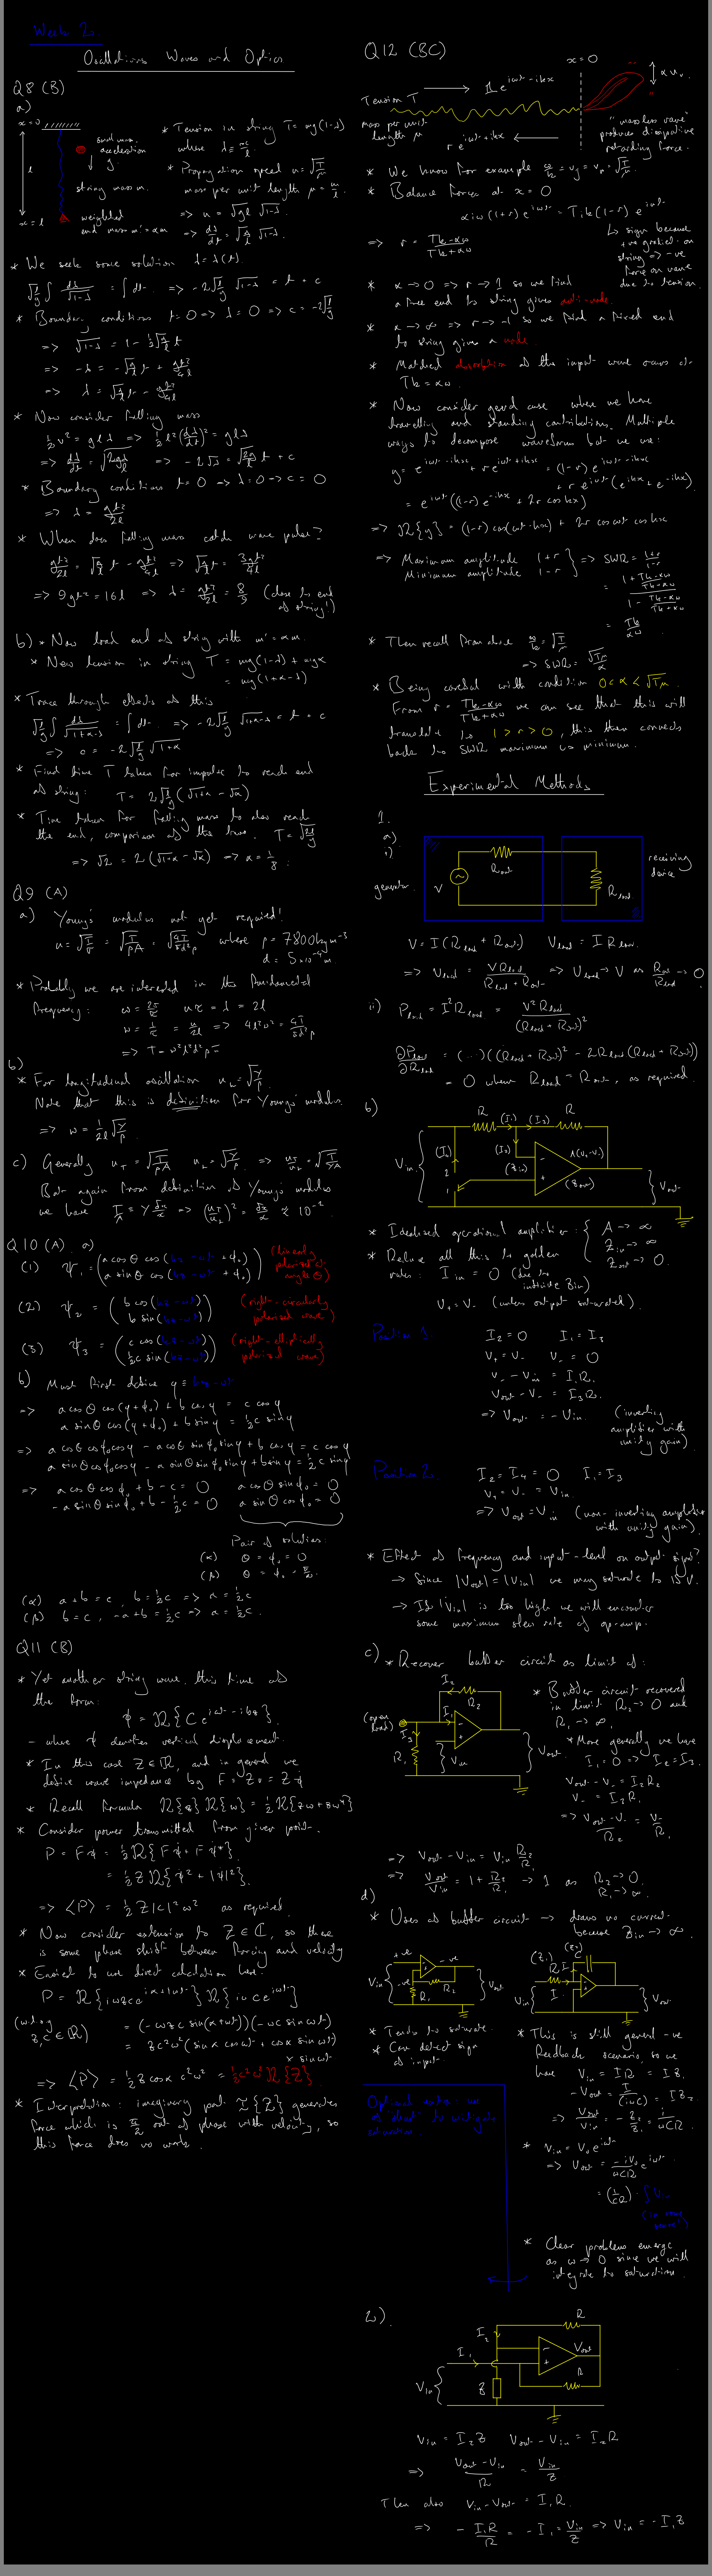 Week 2
Oscillations Waves and Optics
Q8 (B)
a)
x=0
l
x=l
small mass
acceleration
g
string mass m
weighted
end mass m' = αm
* Tension in string T = mg(1-λ)
where λ = x/l
* Propagation speed u = √(T/μ)
mass per unit length μ = m/l
=> u = √(gl) √(1-λ)
=> dλ/dt = √(g/l) √(1-λ)
* We seek some solution λ = λ(t).
√(l/g) ∫ dλ/√(1-λ) = ∫ dt => -2√(l/g) √(1-λ) = t + c
* Boundary conditions t=0 => λ=0 => c = -2√(l/g)
=> √(1-λ) = 1 - ½√(g/l) t
=> -λ = -√(g/l) t + gt²/4l
=> λ = √(g/l) t - gt²/4l
* Now consider falling mass
½v² = glλ => ½l²(dλ/dt)² = glλ
=> dλ/dt = √(2gλ/l)
* Boundary conditions t=0 => λ=0 => c=0
=> λ = gt²/2l
* When does falling mass catch wave pulse?
gt²/2l = √(g/l) t - gt²/4l => √(g/l) t = 3gt²/4l
=> 9gt² = 16l => λ = gt²/2l = 8/9 (close to end
of string!)
b) * Now load end of string with m' = αm.
* New tension in string T = mg(1-λ) + mgα
= mg(1+α-λ)
* Trace through effects of this
√(l/g) ∫ dλ/√(1+α-λ) = ∫ dt => -2√(l/g) √(1+α-λ) = t + c
=> c = -2√(l/g) √(1+α)
* Find time T taken for impulse to reach end
of string: T = 2√(l/g) (√(1+α) - √α)
* Time taken for falling mass to also reach
the end, comparison of the two. T = √(2l/g)
=> √2 = 2(√(1+α) - √α) => α = 1/8.
Q9 (A)
a) Young's modulus not yet required!
where ρ = 7800 kg m⁻³
d = 5×10⁻⁴ m.
* Probably we are interested in the fundamental
frequency:
=> T = ω²l²d²ρπ
b)
* For longitudinal oscillation u_L = √(Y/ρ).
Note that this is definition for Young's modulus.
=> ω = 1/2l √(Y/ρ)
c) Generally u_T = √(T/ρA) u_L = √(Y/ρ) => u_T/u_L = √(T/YA)
But again from definition of Young's modulus
we have T/A = Y δx/x => (u_T/u_L)² = δx/x ≈ 10⁻²
Q10 (A) a)
(1) ψ₁ = (a cos θ cos(kz - ωt + φ₀)
a sin θ cos(kz - ωt + φ₀)) (linearly
polarised at
angle θ)
(2) ψ₂ = (b cos(kz-ωt)
b sin(kz-ωt)) (right-circularly
polarised wave)
(3) ψ₃ = (c cos(kz-ωt)
½c sin(kz-ωt)) (right-elliptically
polarised wave)
b) Must first define φ ≡ kz-ωt
=> a cos θ cos(φ+φ₀) + b cos φ = c cos φ
a sin θ cos(φ+φ₀) + b sin φ = ½c sin φ
=> a cos θ cos φ₀ cos φ - a cos θ sin φ₀ sin φ + b cos φ = c cos φ
a sin θ cos φ₀ cos φ - a sin θ sin φ₀ sin φ + b sin φ = ½c sin φ
=> a cos θ cos φ₀ + b - c = 0 a cos θ sin φ₀ = 0
-a sin θ sin φ₀ + b - ½c = 0 a sin θ cos φ₀ = 0
Pair of solutions:
(α) θ = φ₀ = 0
(β) θ = φ₀ = π/2
(α) a+b = c, b = ½c => a = ½c
(β) b = c, -a+b = ½c => a = ½c.
Q11 (B)
* Yet another string wave, this time of
the form:
ψ = ℜ{C e^(iωt-ikz)}
- where ψ denotes vertical displacement.
* In this case Z ∈ ℝ, and in general we
define wave impedance by F = Zv = Zψ̇
* Recall formula ℜ{z}ℜ{w} = ½ℜ{zw + zw*}
* Consider power transmitted from given point.
P = Fψ̇ = ½ℜ{Fψ̇ + Fψ̇*}
= ½Zℜ{ψ̇² + |ψ̇|²}
=> ⟨P⟩ = ½Z|C|²ω² as required
* Now consider extension to Z ∈ ℂ, so there
is some phase shift between forcing and velocity
* Easiest to use direct calculation here.
P = ℜ{iωzc e^(iα+iωt)}ℜ{iωc e^(iωt)}
(w.l.o.g
z,c ∈ ℝ) = (-ωzc sin(α+ωt))(-ωc sin ωt)
= zc²ω²(sin α cos ωt + cos α sin ωt)
× sin ωt
=> ⟨P⟩ = ½z cos α c²ω² = ½c²ω²ℜ{Z}
* Interpretation: imaginary part ℑ{Z} generates
force which is π/2 out of phase with velocity, so
this force does no work.
Q12 (BC)
x=0
Tension T
1 e^(iωt-ikx)
α v₀
mass per unit
length μ
r e^(iωt+ikx)
"massless vane"
produces dissipative
retarding force.
* We know for example ω/k = v_g = v_p = √(T/μ).
* Balance forces at x=0
αiω(1+r)e^(iωt) = Tik(1-r)e^(iωt)
=> r = (Tk-αω)/(Tk+αω)
sign because
+ve gradient on
string => -ve
force on vane
due to tension.
* α → 0 => r → 1 so we find
a free end to string gives anti-node.
* α → ∞ => r → -1 so we find a fixed end
to string gives a node.
* Matched absorption of the input wave occurs at
Tk = αω.
* Now consider general case where we have
travelling and standing contributions. Multiple
ways to decompose waveform but we use:
y = e^(iωt-ikx) + r e^(iωt+ikx) = (1-r)e^(iωt-ikx)
+ r e^(iωt)(e^(ikx)+e^(-ikx))
= e^(iωt)((1-r)e^(-ikx) + 2r cos kx)
=> ℜ{y} = (1-r) cos(ωt-kx) + 2r cos ωt cos kx
=> Maximum amplitude 1+r
Minimum amplitude 1-r => SWR = (1+r)/(1-r)
= (1 + (Tk-αω)/(Tk+αω))/(1 - (Tk-αω)/(Tk+αω))
= Tk/αω
* Then recall from above ω/k = √(T/μ)
=> SWR = √(Tμ)/α
* Being careful with condition 0 < α < √(Tμ)
From r = (Tk-αω)/(Tk+αω) we can see that this will
translate to 1 > r > 0, this then connects
back to SWR maximum vs minimum.
Experimental Methods
1.
a)
i)
generator
V
R_out
R_load
receiving
device
V = I(R_load + R_out) V_load = I R_load
=> V_load = V R_load/(R_load + R_out) => V_load → V as R_out/R_load → 0.
ii) P_load = I²R_load = V²R_load/(R_load + R_out)²
∂P_load/∂R_load = (...)((R_load + R_out)² - 2R_load(R_load + R_out))
= 0 where R_load = R_out, as required
b)
V_in
R
(I₁)
(I₃)
R
(I₄)
(I₂)
2
1
(Z_in)
A(v₊-v₋)
(Z_out)
V_out
* Idealised operational amplifier: { A → ∞
Z_in → ∞
Z_out → 0.
* Reduce all this to golden
rules: I_in = 0 (due to
infinite Z_in)
V₊ = V₋ (unless output saturated).
Position 1
I₂ = 0 I₁ = I₃
V₊ = V₋ V₋ = 0
V₋ - V_in = I₁R.
V_out - V₋ = I₃R.
=> V_out = -V_in
(inverting
amplifier with
unity gain)
Position 2
I₂ = I₄ = 0 I₁ = I₃
V₊ = V₋ = V_in.
=> V_out = V_in (non-inverting amplifier
with unity gain).
* Effect of frequency and input-level on output signal?
→ Since |V_out| = |V_in| we may saturate to 15V.
→ If |V̇_in| is too high we will encounter
some maximum slew rate of op-amp.
c) * Recover buffer circuit as limit of:
I₂
R₂
(open
load)
I₁
I₃
R₁
V_in
V_out
* Buffer circuit recovered
in limit R₂ → 0 and
R₁ → ∞.
* More generally we have
I₁ = 0 => I₂ = I₃.
V_out - V₋ = I₂R₂
V₋ = I₃R₁
=> (V_out - V₋)/R₂ = V₋/R₁
=> V_out - V_in = V_in R₂/R₁
=> V_out/V_in = 1 + R₂/R₁ → 1 as R₂ → 0
R₁ → ∞.
d)
* Uses of buffer circuit → draws no current
because Z_in → ∞.
V_in
+ve
-ve
-ve
R₂
R₁
V_out
* Tends to saturate.
* Can detect sign
of input.
(Z₁)
R
(Z₂)
C
I
I
V_in
V_out
* This is still general -ve
feedback scenario, so we
have V_in = IR = IZ₁
-V_out = I/(iωC) = IZ₂
=> V_out/V_in = -Z₂/Z₁ = i/ωCR
* V_in = V₀e^(iωt)
=> V_out = -iV₀/ωCR e^(iωt)
* Clear problems emerge
as ω → 0 since we will
integrate to saturation.
2).
R
I₂
I₁
V_out
R
V_in
Z
V_in = I₂Z V_out - V_in = I₂R
=> (V_out - V_in)/R = V_in/Z
Then also V_in - V_out = I₁R.
=> -I₁R/R = -I₁ = V_in/Z => V_in = -I₁Z